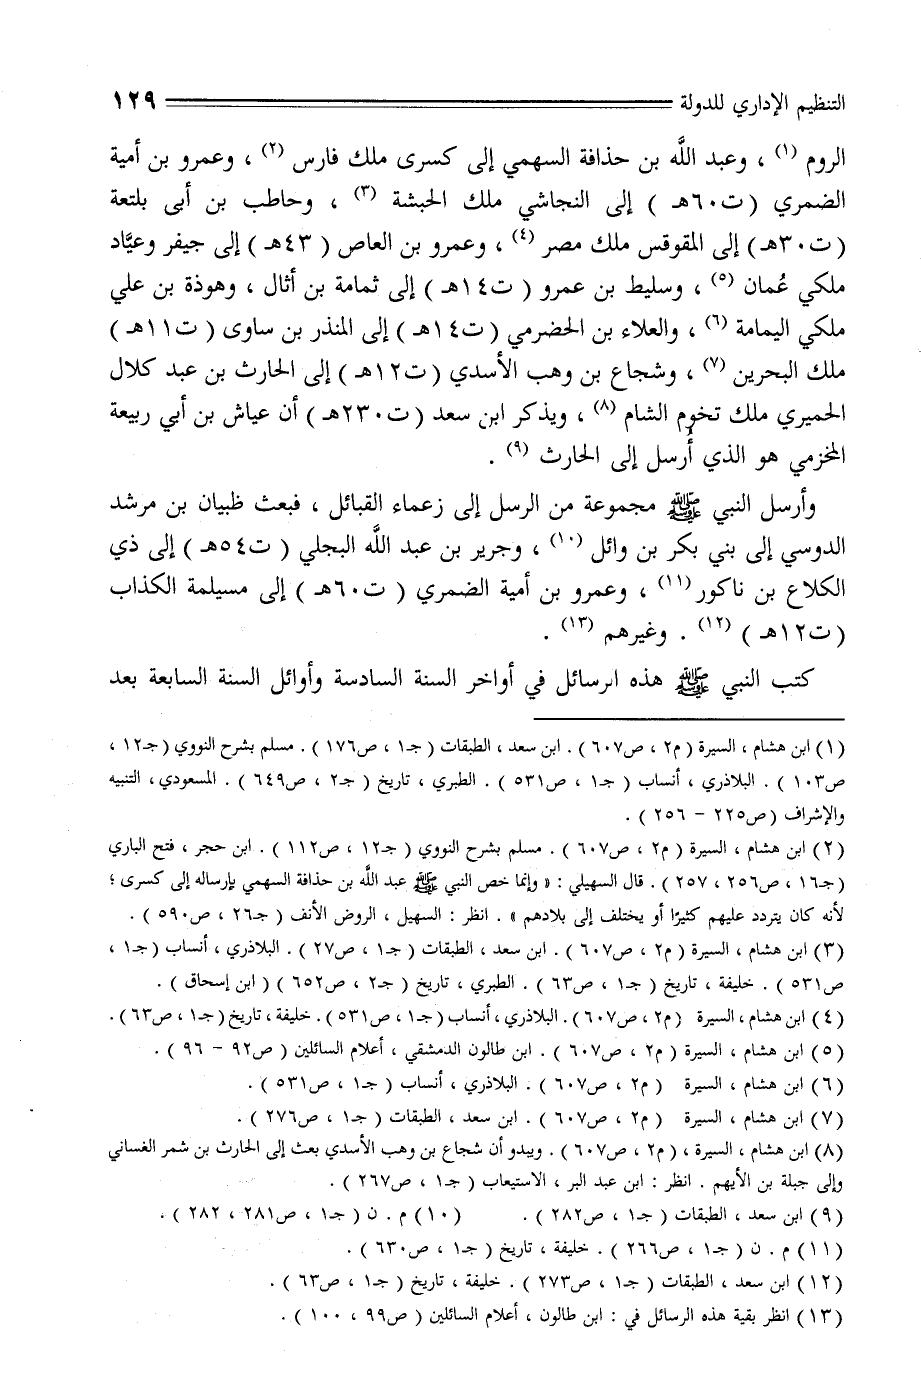 التنظيم الإداري للدولة ١٢٩
الروم (١) ، وعبد اللَّه بن حذافة السهمي إلى كسرى ملك فارس (٢) ، وعمرو بن أمية
الضمري ( ت٦٠هـ ) إلى النجاشي ملك الحبشة (٣) ، وحاطب بن أبي بلتعة
( ت٣٠هـ) إلى المقوقس ملك مصر (٤) ، وعمرو بن العاص ( ٤٣هـ ) إلى جيفر وعيَّاد
ملكي عُمان (٥) ، وسليط بن عمرو ( ت١٤هـ ) إلى ثمامة بن أثال ، وهوذة بن علي
ملكي اليمامة (٦) ، والعلاء بن الحضرمي ( ت١٤هـ ) إلى المنذر بن ساوى ( ت١١هـ )
ملك البحرين (٧) ، وشجاع بن وهب الأسدي ( ت١٢هـ ) إلى الحارث بن عبد كلال
الحميري ملك تخوم الشام (٨) ، ويذكر ابن سعد ( ت٢٣٠هـ ) أن عياش بن أبي ربيعة
المخزمي هو الذي أُرسل إلى الحارث (٩) .
وأرسل النبي ﷺ مجموعة من الرسل إلى زعماء القبائل ، فبعث ظبيان بن مرشد
الدوسي إلى بني بكر بن وائل (١٠) ، وجرير بن عبد اللَّه البجلي ( ت٥٤هـ ) إلى ذي
الكلاع بن ناكور (١١) ، وعمرو بن أمية الضمري ( ت٦٠هـ ) إلى مسيلمة الكذاب
( ت١٢هـ ) (١٢) . وغيرهم (١٣) .
كتب النبي ﷺ هذه الرسائل في أواخر السنة السادسة وأوائل السنة السابعة بعد
(١) ابن هشام ، السيرة ( م٢ ، ص٦٠٧ ) . ابن سعد ، الطبقات ( جـ١ ، ص١٧٦ ) . مسلم بشرح النووي ( جـ١٢ ،
ص١٠٣ ) . البلاذري ، أنساب ( جـ١ ، ص٥٣١ ) . الطبري ، تاريخ ( جـ٢ ، ص٦٤٩ ) . المسعودي ، التنبيه
والإشراف ( ص٢٢٥ - ٢٥٦ ) .
(٢) ابن هشام ، السيرة ( م٢ ، ص٦٠٧ ) . مسلم بشرح النووي ( جـ١٢ ، ص١١٢ ) . ابن حجر ، فتح الباري
( جـ١٦ ، ص٢٥٦ ، ٢٥٧ ) . قال السهيلي : « وإنما خص النبي ﷺ عبد اللَّه بن حذافة السهمي بإرساله إلى كسرى ؛
لأنه كان يتردد عليهم كثيرًا أو يختلف إلى بلادهم » . انظر : السهيل ، الروض الأنف ( جـ٢٦ ، ص٥٩٠ ) .
(٣) ابن هشام ، السيرة ( م٢ ، ص٦٠٧ ) . ابن سعد ، الطبقات ( جـ١ ، ص٢٧ ) . البلاذري ، أنساب ( جـ١ ،
ص٥٣١ ) . خليفة ، تاريخ ( جـ١ ، ص٦٣ ) . الطبري ، تاريخ ( جـ٢ ، ص٦٥٢ ) ( ابن إسحاق ) .
(٤) ابن هشام ، السيرة ( م٢ ، ص٦٠٧ ) . البلاذري ، أنساب ( جـ١ ، ص٥٣١ ) . خليفة ، تاريخ ( جـ١ ، ص٦٣ ) .
(٥) ابن هشام ، السيرة ( م٢ ، ص٦٠٧ ) . ابن طالون الدمشقي ، أعلام السائلين ( ص٩٢ - ٩٦ ) .
(٦) ابن هشام ، السيرة ( م٢ ، ص٦٠٧ ) . البلاذري ، أنساب ( جـ١ ، ص٥٣١ ) .
(٧) ابن هشام ، السيرة ( م٢ ، ص٦٠٧ ) . ابن سعد ، الطبقات ( جـ١ ، ص٢٧٦ ) .
(٨) ابن هشام ، السيرة ، ( م٢ ، ص٦٠٧ ) . ويبدو أن شجاع بن وهب الأسدي بعث إلى الحارث بن شمر الغساني
وإلى جبلة بن الأيهم . انظر : ابن عبد البر ، الاستيعاب ( جـ١ ، ص٢٦٧ ) .
(٩) ابن سعد ، الطبقات ( جـ١ ، ص٢٨٢ ) . (١٠) م . ن ( جـ١ ، ص٢٨١ ، ٢٨٢ ) .
(١١) م . ن ( جـ١ ، ص٢٦٦ ) . خليفة ، تاريخ ( جـ١ ، ص٦٣٠ ) .
(١٢) ابن سعد ، الطبقات ( جـ١ ، ص٢٧٣ ) . خليفة ، تاريخ ( جـ١ ، ص٦٣ ) .
(١٣) انظر بقية هذه الرسائل في : ابن طالون ، أعلام السائلين ( ص٩٩ ، ١٠٠ ) .